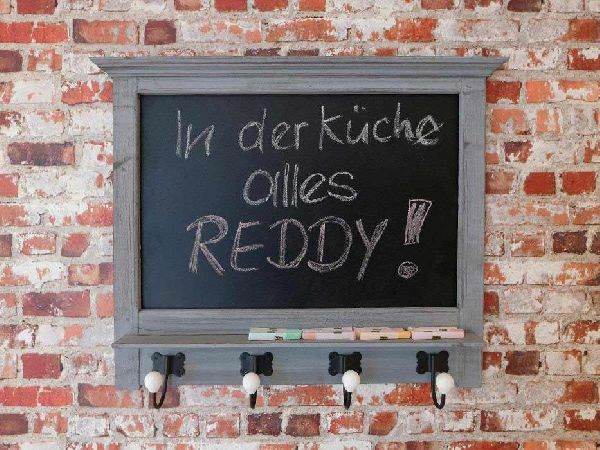 In der Küche
alles
REDDY!